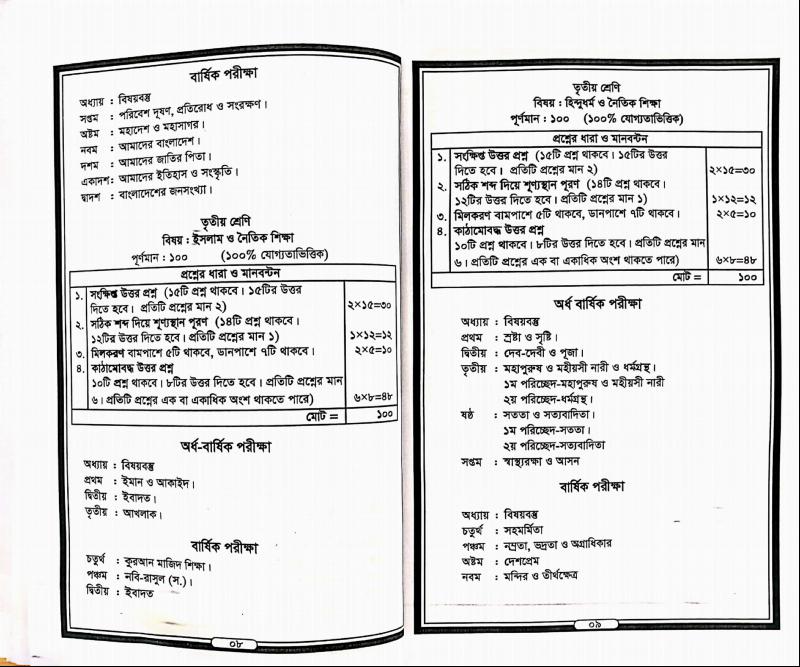 বার্ষিক পরীক্ষা
অধ্যায় : বিষয়বস্তু
সপ্তম : পরিবেশ দূষণ, প্রতিরোধ ও সংরক্ষণ।
অষ্টম : মহাদেশ ও মহাসাগর।
নবম : আমাদের বাংলাদেশ।
দশম : আমাদের জাতির পিতা।
একাদশ: আমাদের ইতিহাস ও সংস্কৃতি।
দ্বাদশ : বাংলাদেশের জনসংখ্যা।
তৃতীয় শ্রেণি
বিষয় : ইসলাম ও নৈতিক শিক্ষা
পূর্ণমান : ১০০ (১০০% যোগ্যতাভিত্তিক)
প্রশ্নের ধারা ও মানবন্টন
১. সংক্ষিপ্ত উত্তর প্রশ্ন (১৫টি প্রশ্ন থাকবে। ১৫টির উত্তর
দিতে হবে। প্রতিটি প্রশ্নের মান ২) ২×১৫=৩০
২. সঠিক শব্দ দিয়ে শূণ্যস্থান পূরণ (১৪টি প্রশ্ন থাকবে।
১২টির উত্তর দিতে হবে। প্রতিটি প্রশ্নের মান ১) ১×১২=১২
৩. মিলকরণ বামপাশে ৫টি থাকবে, ডানপাশে ৭টি থাকবে। ২×৫=১০
৪. কাঠামোবদ্ধ উত্তর প্রশ্ন
১০টি প্রশ্ন থাকবে। ৮টির উত্তর দিতে হবে। প্রতিটি প্রশ্নের মান
৬। প্রতিটি প্রশ্নের এক বা একাধিক অংশ থাকতে পারে) ৬×৮=৪৮
মোট = ১০০
অর্ধ-বার্ষিক পরীক্ষা
অধ্যায় : বিষয়বস্তু
প্রথম : ইমান ও আকাইদ।
দ্বিতীয় : ইবাদত।
তৃতীয় : আখলাক।
বার্ষিক পরীক্ষা
চতুর্থ : কুরআন মাজিদ শিক্ষা।
পঞ্চম : নবি-রাসুল (স.)।
দ্বিতীয় : ইবাদত
০৮
তৃতীয় শ্রেণি
বিষয় : হিন্দুধর্ম ও নৈতিক শিক্ষা
পূর্ণমান : ১০০ (১০০% যোগ্যতাভিত্তিক)
প্রশ্নের ধারা ও মানবন্টন
১. সংক্ষিপ্ত উত্তর প্রশ্ন (১৫টি প্রশ্ন থাকবে। ১৫টির উত্তর
দিতে হবে। প্রতিটি প্রশ্নের মান ২) ২×১৫=৩০
২. সঠিক শব্দ দিয়ে শূণ্যস্থান পূরণ (১৪টি প্রশ্ন থাকবে।
১২টির উত্তর দিতে হবে। প্রতিটি প্রশ্নের মান ১) ১×১২=১২
৩. মিলকরণ বামপাশে ৫টি থাকবে, ডানপাশে ৭টি থাকবে। ২×৫=১০
৪. কাঠামোবদ্ধ উত্তর প্রশ্ন
১০টি প্রশ্ন থাকবে। ৮টির উত্তর দিতে হবে। প্রতিটি প্রশ্নের মান
৬। প্রতিটি প্রশ্নের এক বা একাধিক অংশ থাকতে পারে) ৬×৮=৪৮
মোট = ১০০
অর্ধ বার্ষিক পরীক্ষা
অধ্যায় : বিষয়বস্তু
প্রথম : স্রষ্টা ও সৃষ্টি।
দ্বিতীয় : দেব-দেবী ও পূজা।
তৃতীয় : মহাপুরুষ ও মহীয়সী নারী ও ধর্মগ্রন্থ।
১ম পরিচ্ছেদ-মহাপুরুষ ও মহীয়সী নারী
২য় পরিচ্ছেদ-ধর্মগ্রন্থ।
ষষ্ঠ : সততা ও সত্যবাদিতা।
১ম পরিচ্ছেদ-সততা।
২য় পরিচ্ছেদ-সত্যবাদিতা
সপ্তম : স্বাস্থ্যরক্ষা ও আসন
বার্ষিক পরীক্ষা
অধ্যায় : বিষয়বস্তু
চতুর্থ : সহমর্মিতা
পঞ্চম : নম্রতা, ভদ্রতা ও অগ্রাধিকার
অষ্টম : দেশপ্রেম
নবম : মন্দির ও তীর্থক্ষেত্র
০৯